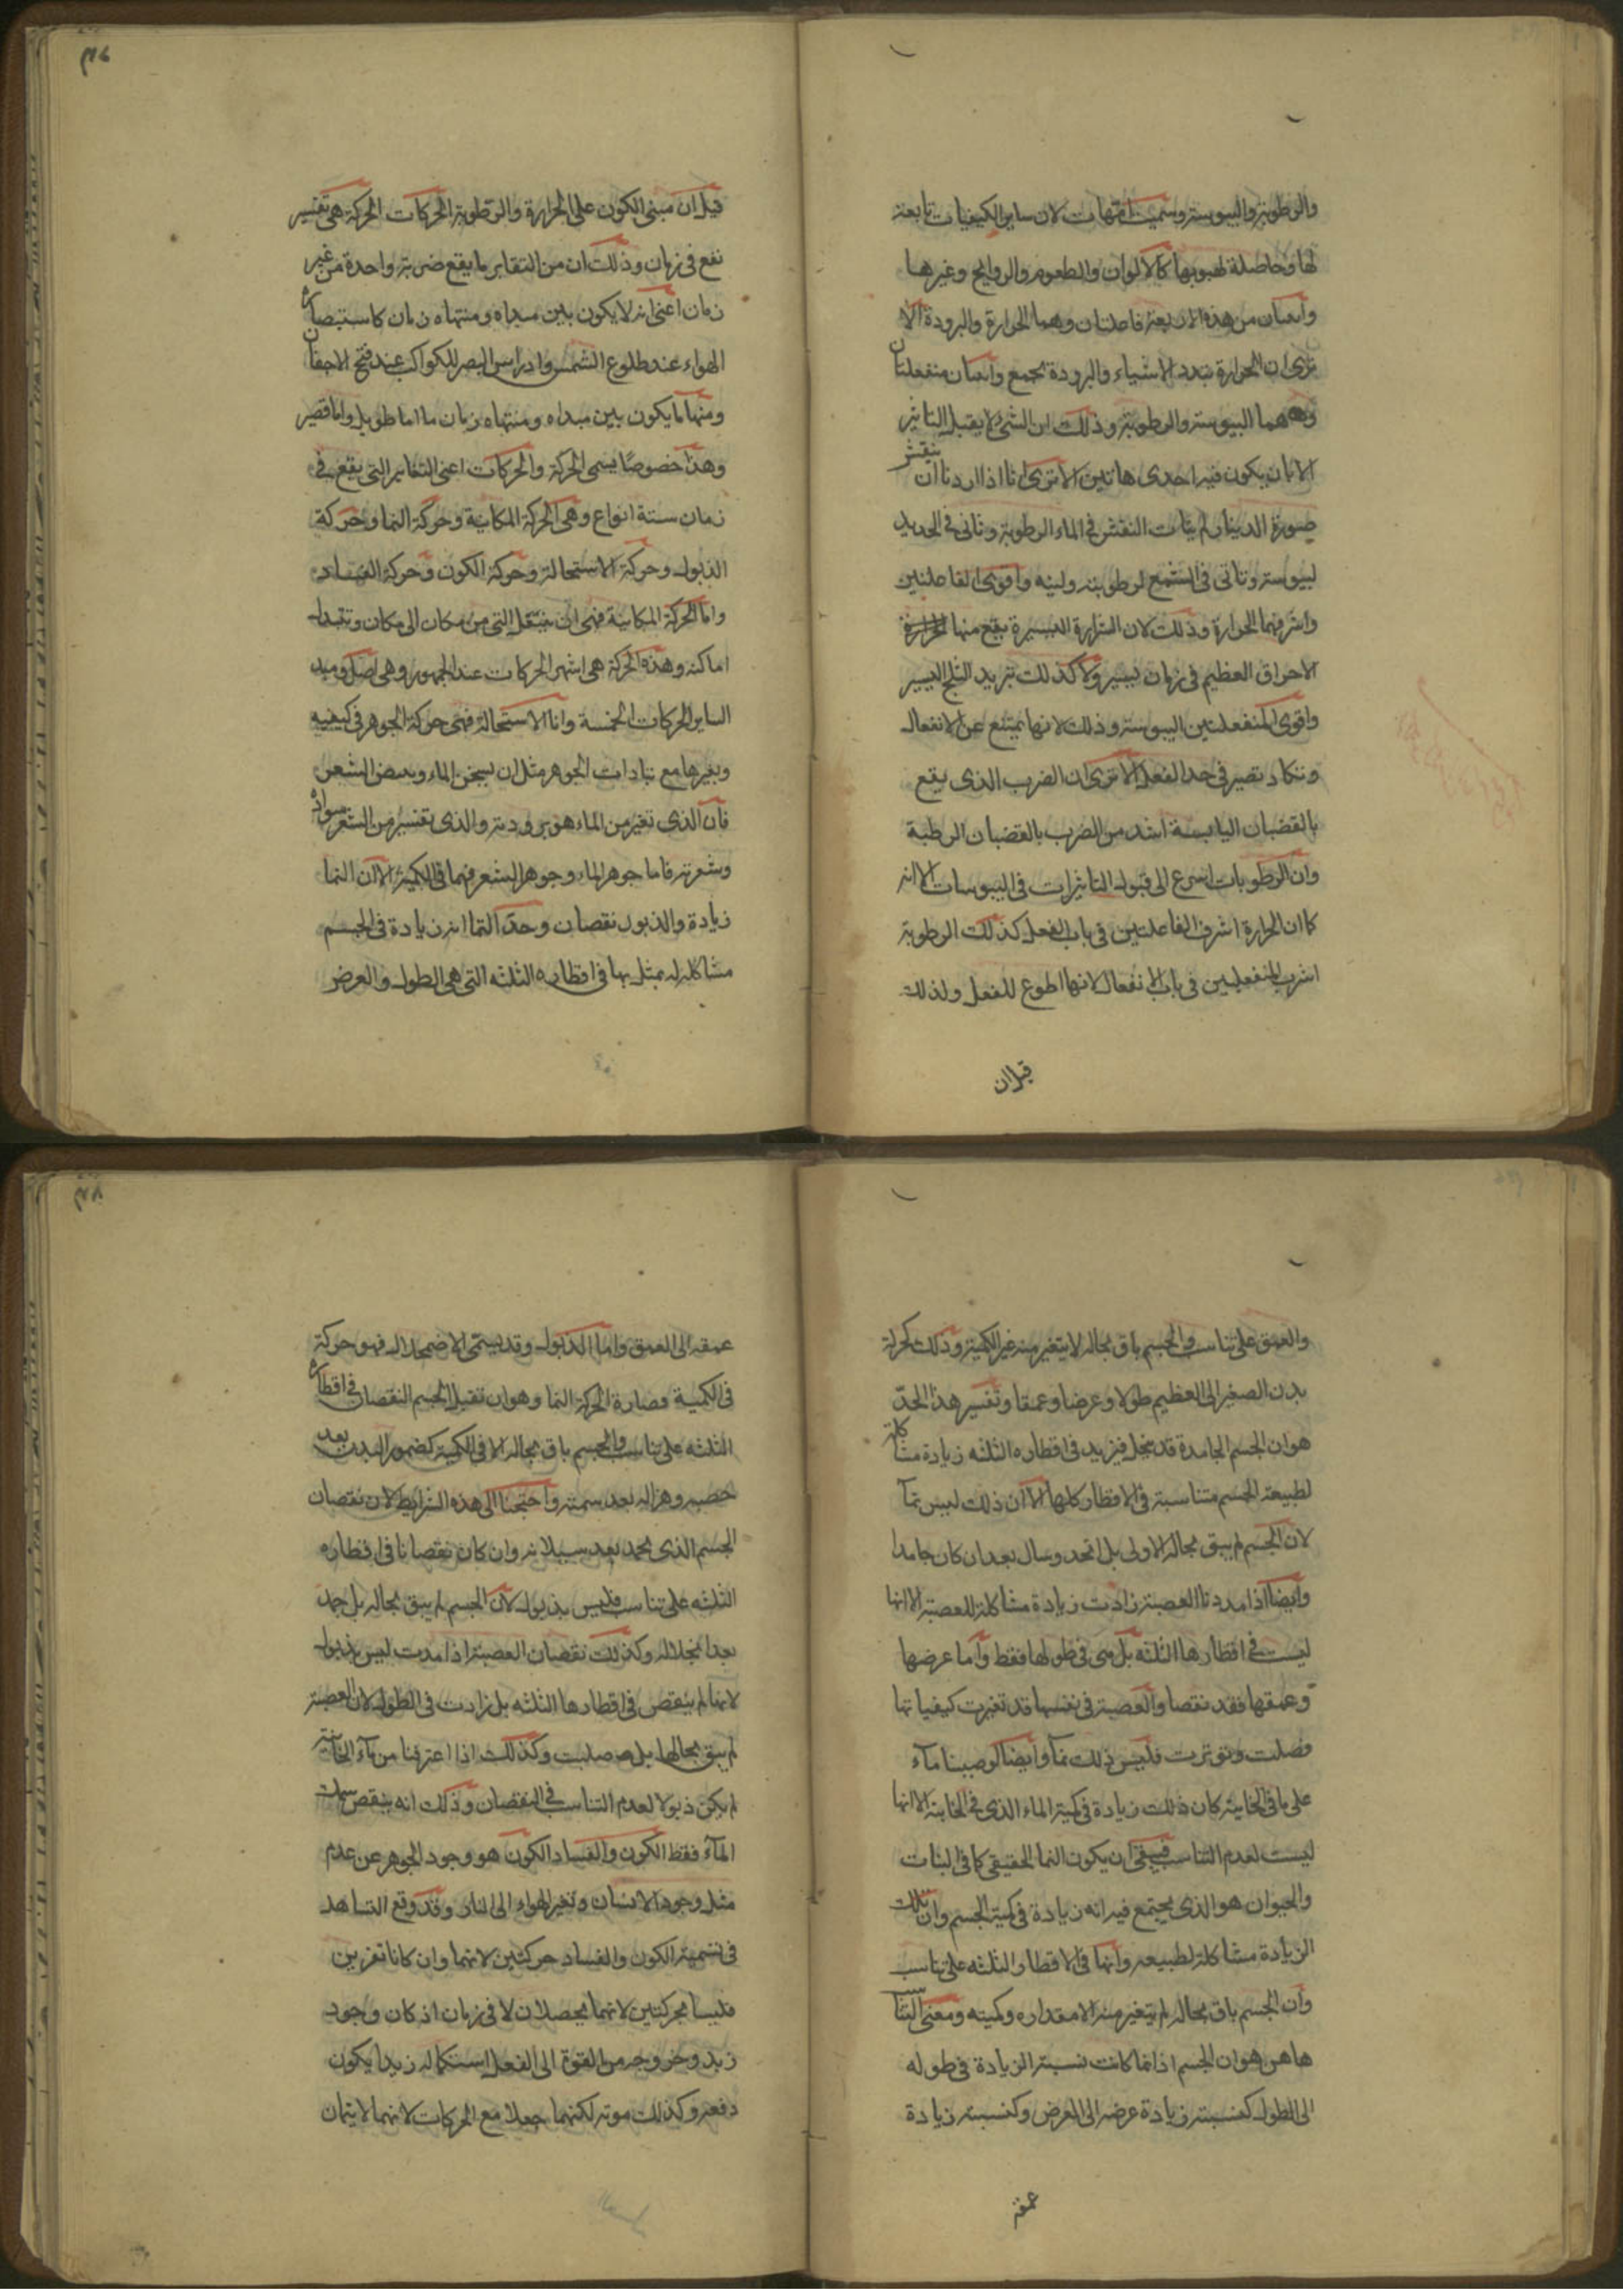 والرطوبة واليبوسة وسميت امهات لان ساير الكيفيات تابعة
لها وحاصلة لهبوبها كالالوان والطعوم والروايح وغيرها
واثنتان من هذه الاربعة فاعلتان وهما الحرارة والبرودة الا
ترى ان الحرارة تبدد الاشياء والبرودة تجمع واثنتان منفعلتان
وهما اليبوسة والرطوبة وذلك ان الشئ لا يقبل التاثير
الا بان يكون فيه احدى هاتين الا ترى انا اذا اردنا ان ينقش
صورة الدينار لم يتات النقش في الماء الرطوبة وتاتى في الحديد
ليبوسته وتاتى في الشمع لرطوبته ولينه واقوى الفاعلتين
واشرفهما الحرارة وذلك لان الشرارة اليسيرة يقع منها الحرارة
الاحراق العظيم في زمان يسير ولا كذلك تبريد الثلج اليسير
واقوى المنفعلتين اليبوسة وذلك لانها تمتنع عن الانفعال
وتكاد تصير في حد الفعل الا ترى ان الضرب الذى يقع
بالقضبان اليابسة اشد من الضرب بالقضبان الرطبة
وان الرطوبات اسرع الى قبول التاثيرات فى اليبوسات الا انه
كما ان الحرارة اشرف الفاعلتين في باب الفعل كذلك الرطوبة
اشرف المنفعلين في باب الانفعال لانها اطوع للفعل ولذلك
قيل ان
قيل ان مبنى الكون على الحرارة والرطوبة الحركات الحركة هي تغيير
نقع في زمان وذلك ان من التغاير ما يقع ضربة واحدة من غير
زمان اعنى انه لا يكون بين مبداه ومنتهاه زمان كاستبصاره
الهواء عند طلوع الشمس وادراس البصر للكواكب عند فتح الاجفان
ومنها ما يكون بين مبداه ومنتهاه زمان ما اما طويل واما قصير
وهذا خصوصا يسمى الحركة والحركات اعنى التغاير التى يقع في
زمان ستة انواع وهى الحركة المكانية وحركة النما وحركة
الذبول وحركة الاستحالة وحركة الكون وحركة الفساد
واما الحركة المكانية فهى ان ينتقل الشى من مكان الى مكان وتتبدل
اماكنه وهذه الحركة هى اشهر الحركات عند الجمهور وهى اصل ومبد
الساير الحركات الخمسة واما الاستحالة فهى حركة الجوهر في كيفيه
وبغيرها مع تبادات الجوهر مثل ان يسخن الماء وببيض الشعر
فان الذى تغير من الماء هو برودته والذى تغير من الشعر سواده
وشعرته فاما جوهر الماء وجوهر الشعر فهما في الكمية الا ان النما
زيادة والذبول نقصان وحد النما انه زيادة في الجسم
مشاكلة له بمثل بها في اقطاره الثلثه التى هى الطول والعرض
والعمق على تناسب والجسم باق بحاله لا يتغير منه غير الكمية وذلك كحركة
بدن الصغير الى العظيم طولا وعرضا وعمقا وتفسير هذا الحد
هو ان الجسم الجامدة قد ينحل فيزيد في اقطاره الثلثه زيادة مشاكلة
لطبيعة الجسم متناسبة في الاقطار كلها الا ان ذلك ليس نماً
لان الجسم لم يبق بحاله الاولى بل انحد وسال بعد ان كان جامدا
وايضا اذا مددنا العصبة زادت زيادة مشاكلة للعصبة الا انها
ليست في اقطارها الثلثه بل هى في طولها فقط واما عرضها
وعمقها فقد نقصا والعصبة في نفسها قد تغيرت كيفياتها
فصلت وتوترت فليس ذلك نمآ وايضا لو صببنا مآء
على ما في الخابية كان ذلك زيادة في كمية الماء الذى في الخابية الا انها
ليست لعدم التناسب فبقى ان يكون النما الحقيقى كما في النبات
والحيوان هو الذى يجتمع فيه انه زيادة في كمية الجسم وان تلك
الزيادة مشاكلة لطبيعه وانها في الاقطار الثلثه على تناسب
وان الجسم باق بحاله لم يتغير منه الا مقداره وكميته ومعنى التناسب
هاهن هو ان الجسم اذا نما كانت نسبة الزيادة في طوله
الى الطول كنسبة زيادة عرضه الى العرض وكنسبة زيادة
عمقه
عمقه الى العمق واما الذبول وقد يسمى الاضمحلال فهو حركة
في الكمية مضارة الحركة النما وهو ان تقبل الجسم النقصان في اقطاره
الثلثه على تناسب والجسم باق بحاله الا في الكمية كضمور البدن بعد
خصبه وهزاله بعد سمنه واحتجنا الى هذه الشرايط لان نقصان
الجسم الذى يجمد بعد سيلانه وان كان نقصانا في اقطاره
الثلثه على تناسب فليس بذبول لان الجسم لم يبق بحاله بل جمد
بعد انحلاله وكذلك نقصان العصبة اذا مدت ليس بذبول
لانها لم ينقص في اقطارها الثلثه بل زادت في الطول لان العصبة
لم يبق بحالها بل صلبت وكذلك اذا اغترفنا من مآء الخابية
لم يكن ذبولا لعدم التناسب في النقصان وذلك انه ينقص سمك
المآء فقط الكون والفساد الكون هو وجود الجوهر عن عدم
مثل وجود الانسان وتغير الهواء الى النار وقد وقع التساهد
في تسمية الكون والفساد حركتين لانهما وان كانا تغيرين
فليسا بحركتين لانهما يحصلان لا في زمان اذ كان وجود
زيد وخروجه من القوة الى الفعل استكماله زيدا يكون
دفعه وكذلك موته لكنهما جعلا مع الحركات لانهما لا يتمان